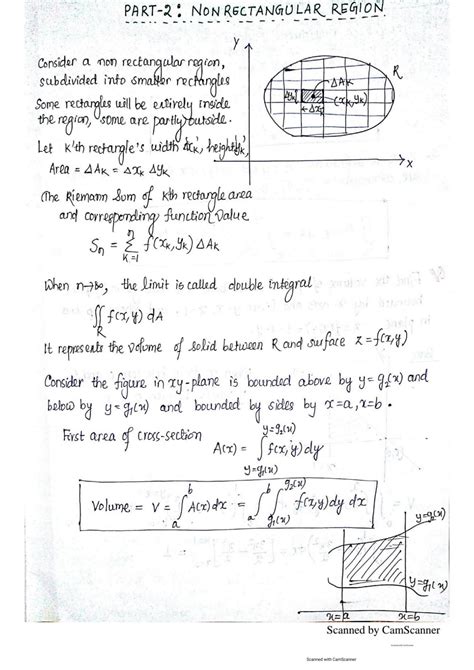 PART-2: NONRECTANGULAR REGION
Consider a non rectangular region,
subdivided into smaller rectangles
Some rectangles will be entirely inside
the region, some are partly outside.
Let k'th rectangle's width Δxₖ', height yₖ',
Area = ΔAₖ = Δxₖ Δyₖ
Y
R
ΔAₖ
(xₖ,yₖ)
Δxₖ
x
The Riemann Sum of kth rectangle area
and corresponding function value
Sₙ = Σ f(xₖ,yₖ) ΔAₖ
n
K=1
When n→∞, the limit is called double integral
∬ f(x,y) dA
R
It represents the volume of solid between R and surface z=f(x,y)
Consider the figure in xy-plane is bounded above by y=g₂(x) and
below by y=g₁(x) and bounded by sides by x=a, x=b.
First area of cross-section
y=g₂(x)
A(x) = ∫ f(x,y) dy
y=g₁(x)
Volume = V = ∫ₐᵇ A(x) dx = ∫ₐᵇ ∫ f(x,y) dy dx
g₂(x)
g₁(x)
y=g₂(x)
y=g₁(x)
x=a
x=b
Scanned by CamScanner
Scanned with CamScanner